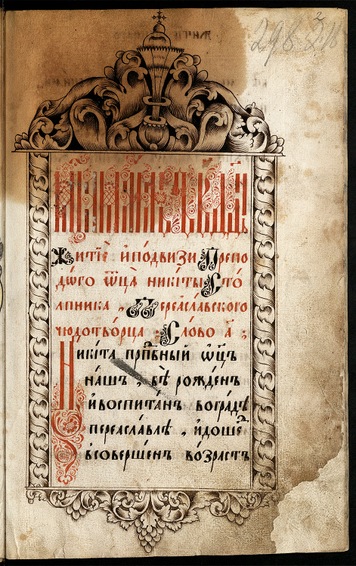 Житїе и҆подвизи Препо
до́внаго ѿц҃а никиты Сто
лпника , Переславскаго
чюдотворца : Слово а҃ :
Ники́та прпⷣбный ѿц҃ъ
на́шъ , бѣ̀ рожде́нъ
и҆воспита́нъ вогра́дѣ
пересла́влѣ , и҆дошеⷣ
в̾соверше́н возрастъ